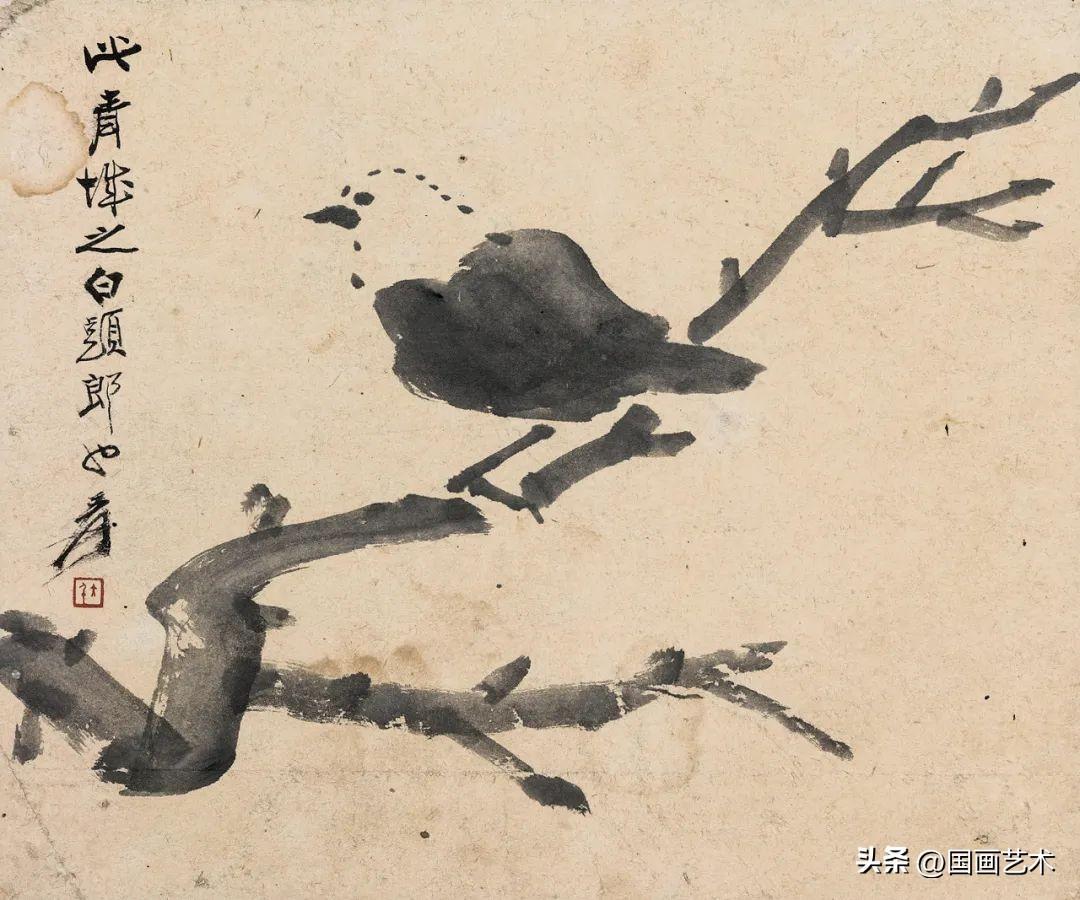 此青城之白頭郎也爰
头条 @国画艺术